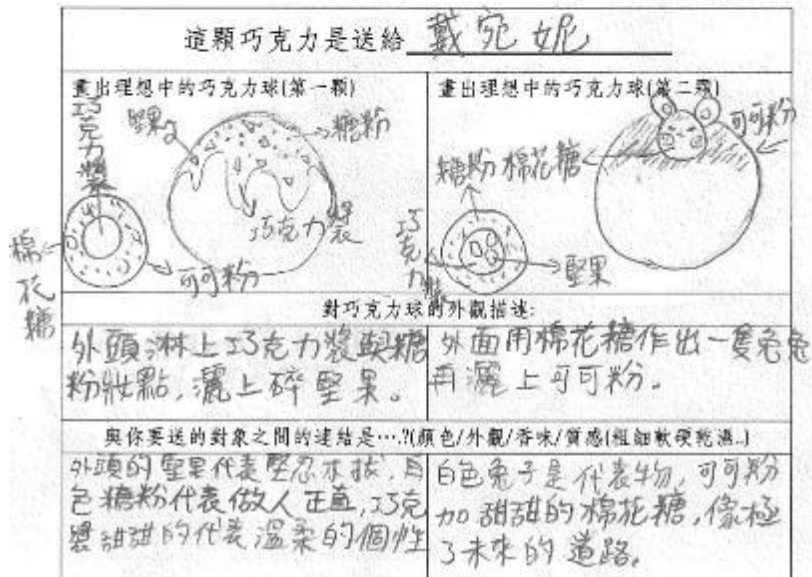 這顆巧克力是送給 戴宛妮
畫出理想中的巧克力球(第一顆)
巧克力漿
堅果
糖粉
巧克力漿
可可粉
棉花糖
畫出理想中的巧克力球(第二顆)
可可粉
糖粉 棉花糖
巧克力漿
堅果
對巧克力球的外觀描述:
外頭淋上巧克力漿與糖
粉妝點,灑上碎堅果。
外面用棉花糖作出一隻兔兔
再灑上可可粉。
與你要送的對象之間的連結是…?(顏色/外觀/香味/質感(粗細軟硬乾濕..)
外頭的堅果代表堅忍不拔,白
色糖粉代表做人正直,巧克
漿甜甜的代表溫柔的個性
白色兔子是代表物,可可粉
加甜甜的棉花糖,像極
了未來的道路。